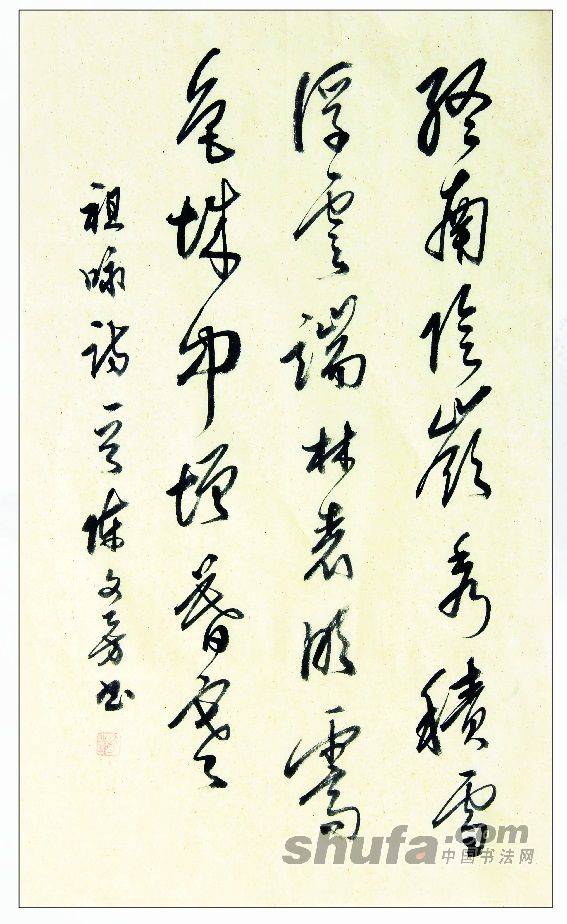 終南陰嶺秀積雪
浮雲端林表明霽
色城中增暮寒
祖咏詩一首陳文芳書
shufa.com
中国书法网